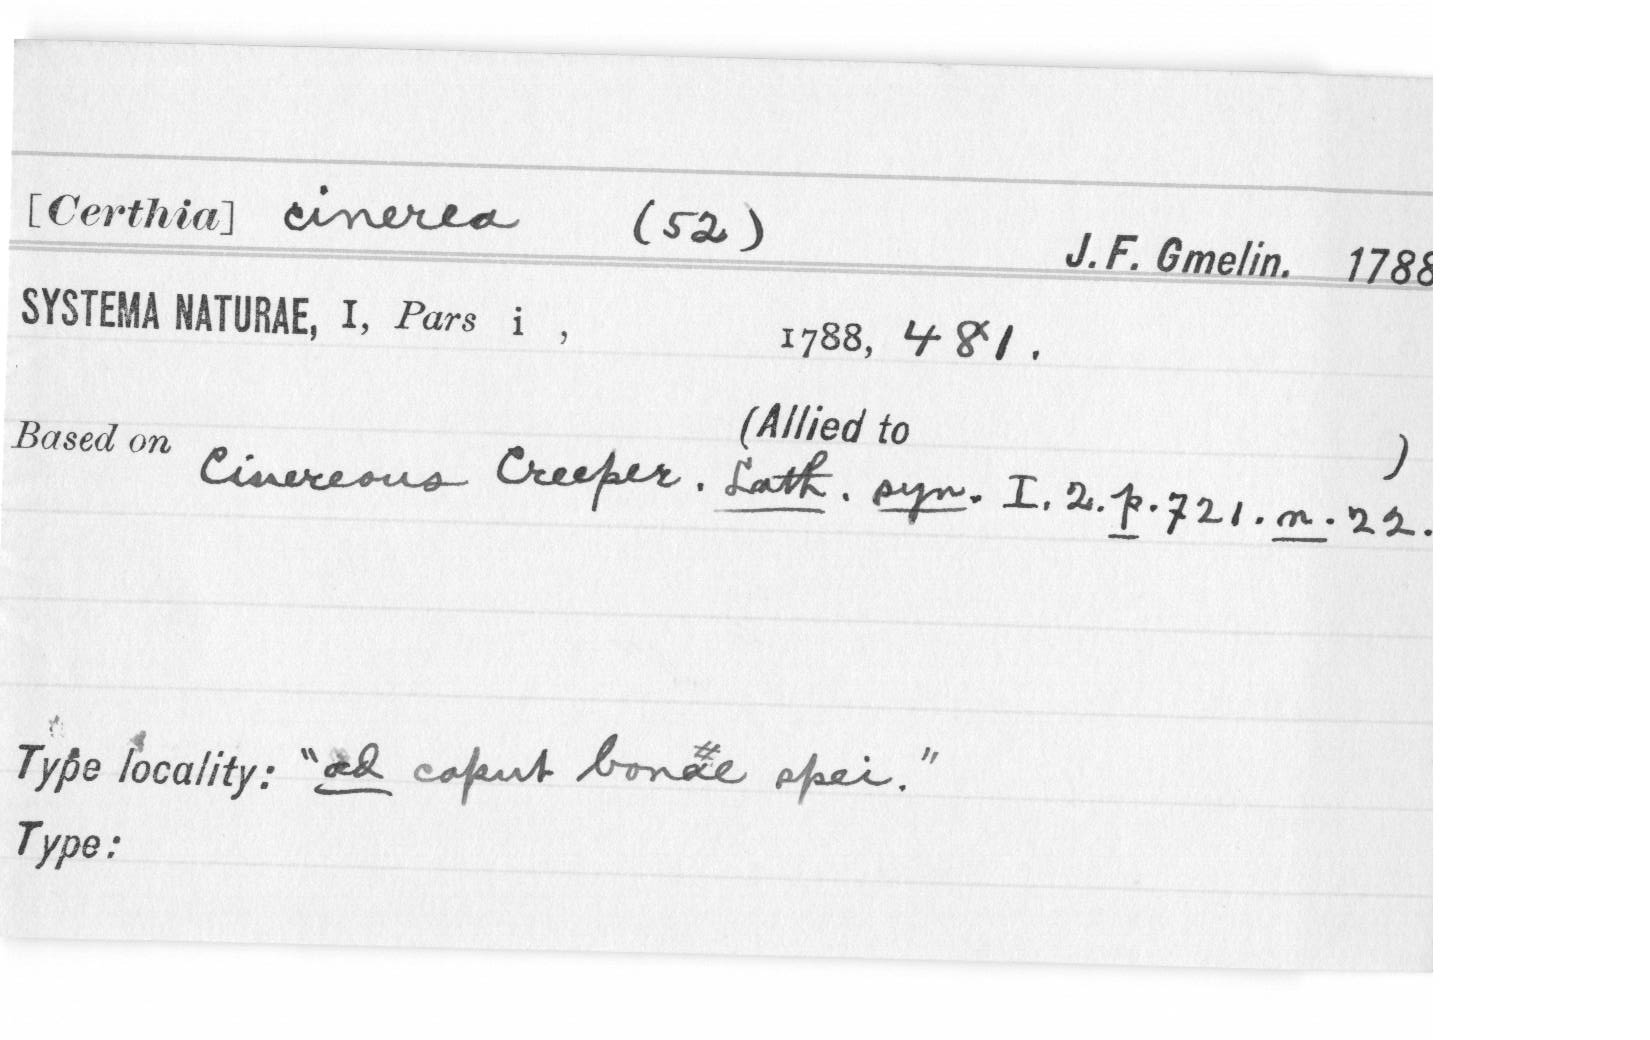 [Certhia] cinerea (52)
J. F. Gmelin. 1788
SYSTEMA NATURAE, I, Pars i , 1788, 481.
(Allied to )
Based on Cinereous Creeper. Lath. syn. I. 2. p. 721. n. 22.
Type locality: "ad caput bonae spei."
#
Type: